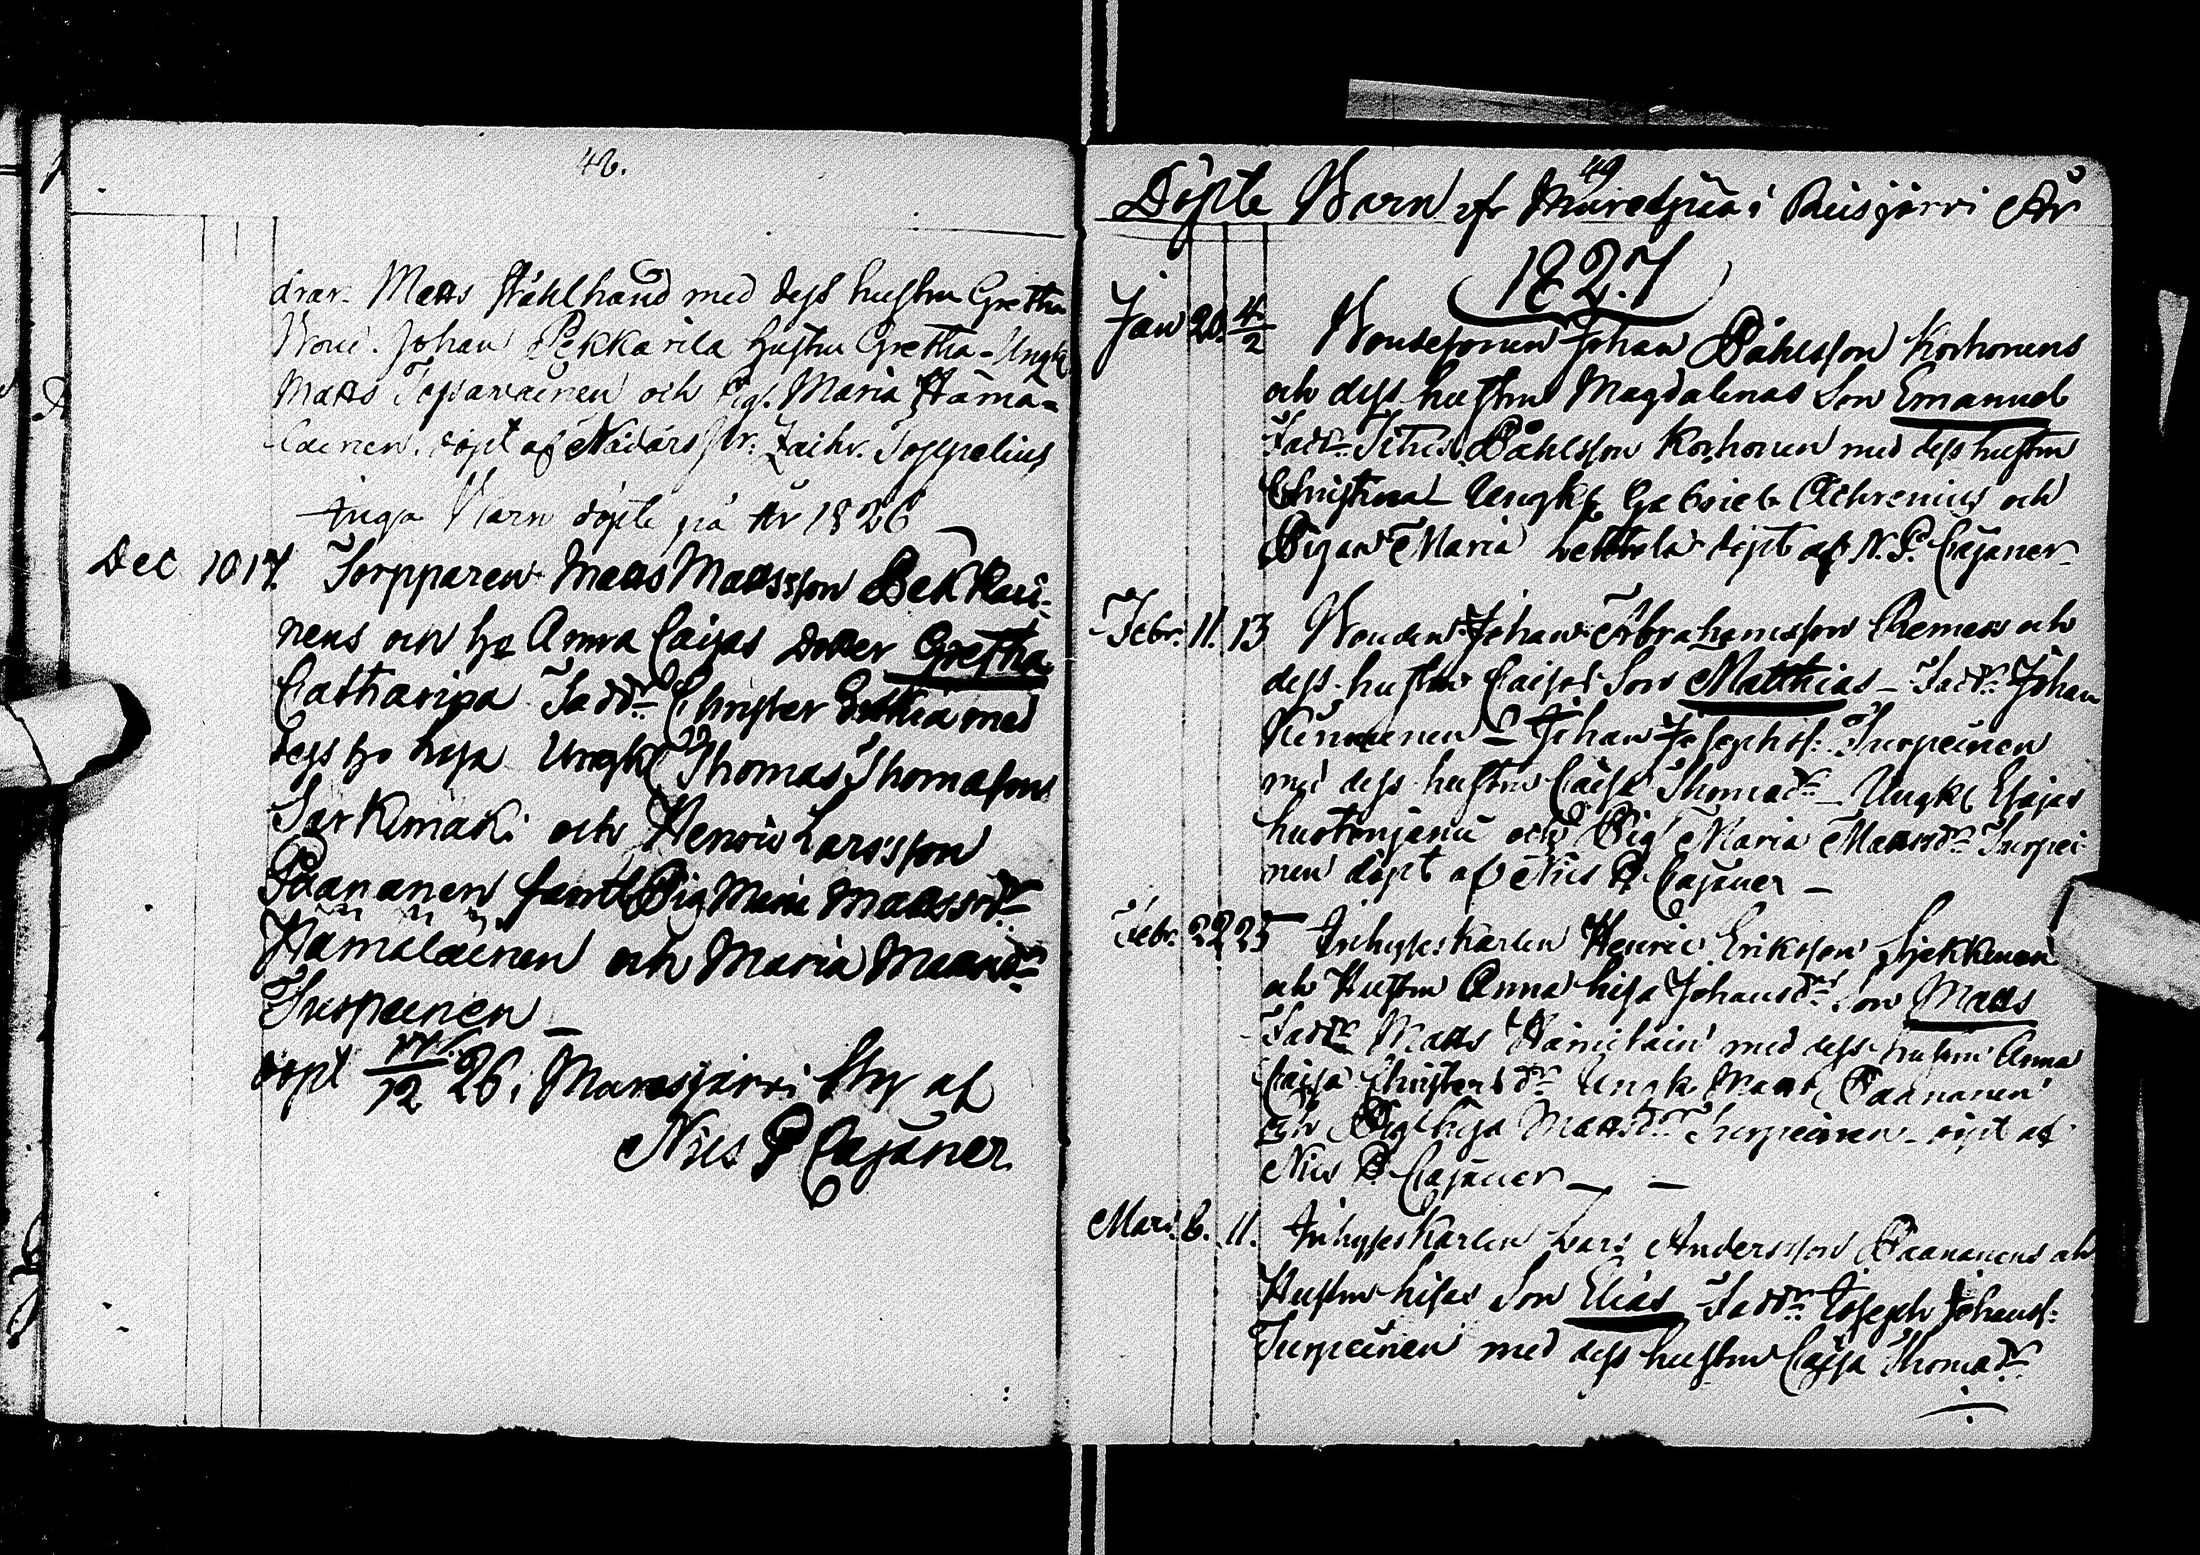 48.
drar. Matts Ståhlhand med dess hustru Gretha
Johan Pekkarila hustru Gretha - Ungk.
Matts och Pig. Maria Hämä-
läinen. döpt af Zachr. Toppelius
Inga Barn döpte på År 1826
Dec 10 17. Torpparen Matts Mattsson Pekkari-
nens och h. Anna Caisas dotter Gretha
Catharina Faddr. Christer med
dess h. Lisa Ungk. Thomas Thomasson
Särkimäki och Henric Larsson
Paananen samt Pig Maria Mattsdr.
Hämäläinen och Maria Mattsdr.
Turpeinen
döpt 17/12 26. af
Nils P Cajaner
49
Döpte Barn af i Reisjärvi År
1827
Jan 20. 4/2 Bondesonen Johan Påhlsson Korhonens
och dess hustru Magdalenas Son Emanuel
Faddr. Påhlsson Korhonen med dess hustru
Christina Ungk. Gabriel Achrenius och
Pigan Maria döpt af N. P. Cajaner
Febr. 11. 13 Bonden Johan Abrahamsson och
dess hustru Caisas Son Matthias - Faddr. Johan
Kinnunen - Johan Josephss. Turpeinen
med dess hustru Caisa Thomadr. - Ungk. Esajas
och Pig Maria Mattsdr. Turpei
nen döpt af Nils P. Cajaner -
Febr. 22 25 Inhyseskarlen Henric Eriksson
och Hustru Anna Lisa Johansdrs. Son Matts
Faddr. Matts Hämeläin med dess hustru Anna
Caisa Christersdr. Ungk. Matts Paananen
och Pig Lisa Mattsdr. Turpeinen - döpt af
Nils P. Cajaner - -
Mars. 6. 11. Inhyseskarlen Lars Andersson Paananens och
Hustru Lisas Son Elias Faddr. Joseph Johanss.
Turpeinen med dess hustru Caisa Thomadr.